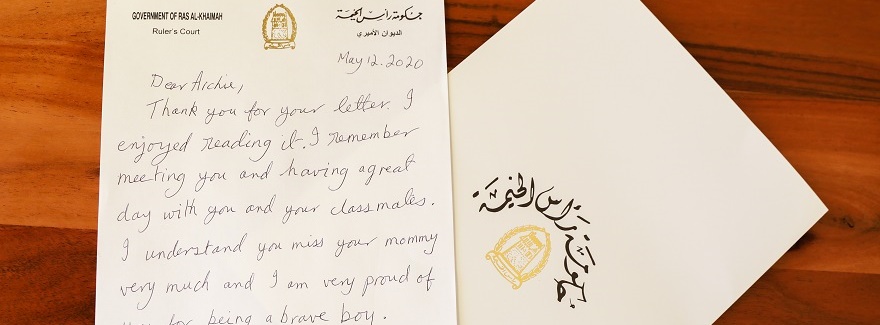 GOVERNMENT OF RAS AL-KHAIMAH
Ruler's Court
حكومة رأس الخيمة
الديوان الأميري
May 12. 2020
Dear Archie,
Thank you for your letter. I
enjoyed reading it. I remember
meeting you and having a great
day with you and your classmates.
I understand you miss your mommy
very much and I am very proud of
you for being a brave boy.
حكومة رأس الخيمة